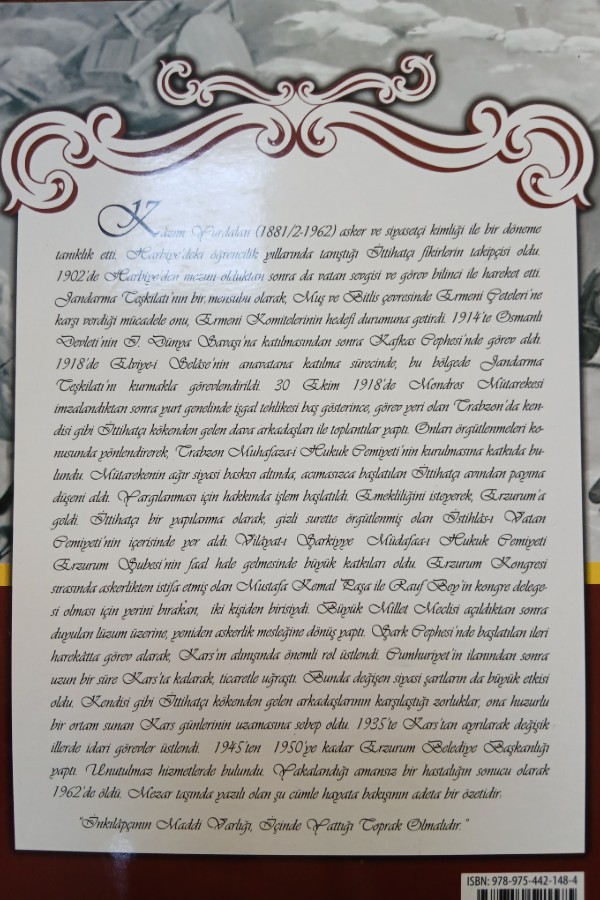 Kâzım Yurdalan (1881/2-1962) asker ve siyasetçi kimliği ile bir döneme
tanıklık etti. Harbiye'deki öğrencilik yıllarında tanıştığı İttihatçı fikirlerin takipçisi oldu.
1902'de Harbiye'den mezun olduktan sonra da vatan sevgisi ve görev bilinci ile hareket etti.
Jandarma Teşkilatı'nın bir mensubu olarak, Muş ve Bitlis çevresinde Ermeni Çeteleri'ne
karşı verdiği mücadele onu, Ermeni Komitelerinin hedefi durumuna getirdi. 1914'te Osmanlı
Devleti'nin I. Dünya Savaşı'na katılmasından sonra Kafkas Cephesi'nde görev aldı.
1918'de Elviye-i Selâse'nin anavatana katılma sürecinde, bu bölgede Jandarma
Teşkilatı'nı kurmakla görevlendirildi. 30 Ekim 1918'de Mondros Mütarekesi
imzalandıktan sonra yurt genelinde işgal tehlikesi baş gösterince, görev yeri olan Trabzon'da ken-
disi gibi İttihatçı kökenden gelen dava arkadaşları ile toplantılar yaptı. Onları örgütlenmeleri ko-
nusunda yönlendirerek, Trabzon Muhafaza-i Hukuk Cemiyeti'nin kurulmasına katkıda bu-
lundu. Mütarekenin ağır siyasi baskısı altında, acımasızca başlatılan İttihatçı avından payına
düşeni aldı. Yargılanması için hakkında işlem başlatıldı. Emekliliğini isteyerek, Erzurum'a
geldi. İttihatçı bir yapılanma olarak, gizli surette örgütlenmiş olan İstihlâs-ı Vatan
Cemiyeti'nin içerisinde yer aldı. Vilâyat-ı Şarkiyye Müdafaa-i Hukuk Cemiyeti
Erzurum Şubesi'nin faal hale gelmesinde büyük katkıları oldu. Erzurum Kongresi
sırasında askerlikten istifa etmiş olan Mustafa Kemal Paşa ile Rauf Bey'in kongre delege-
si olması için yerini bırakan, iki kişiden birisiydi. Büyük Millet Meclisi açıldıktan sonra
duyulan lüzum üzerine, yeniden askerlik mesleğine dönüş yaptı. Şark Cephesi'nde başlatılan ileri
harekâtta görev alarak, Kars'ın alınışında önemli rol üstlendi. Cumhuriyet'in ilanından sonra
uzun bir süre Kars'ta kalarak, ticaretle uğraştı. Bunda değişen siyasi şartların da büyük etkisi
oldu. Kendisi gibi İttihatçı kökenden gelen arkadaşlarının karşılaştığı zorluklar, ona huzurlu
bir ortam sunan Kars günlerinin uzamasına sebep oldu. 1935'te Kars'tan ayrılarak değişik
illerde idari görevler üstlendi. 1945'ten 1950'ye kadar Erzurum Belediye Başkanlığı
yaptı. Unutulmaz hizmetlerde bulundu. Yakalandığı amansız bir hastalığın sonucu olarak
1962'de öldü. Mezar taşında yazılı olan şu cümle hayata bakışının adeta bir özetidir.
"İnkılâpçının Maddi Varlığı, İçinde Yattığı Toprak Olmalıdır."
ISBN: 978-975-442-148-4